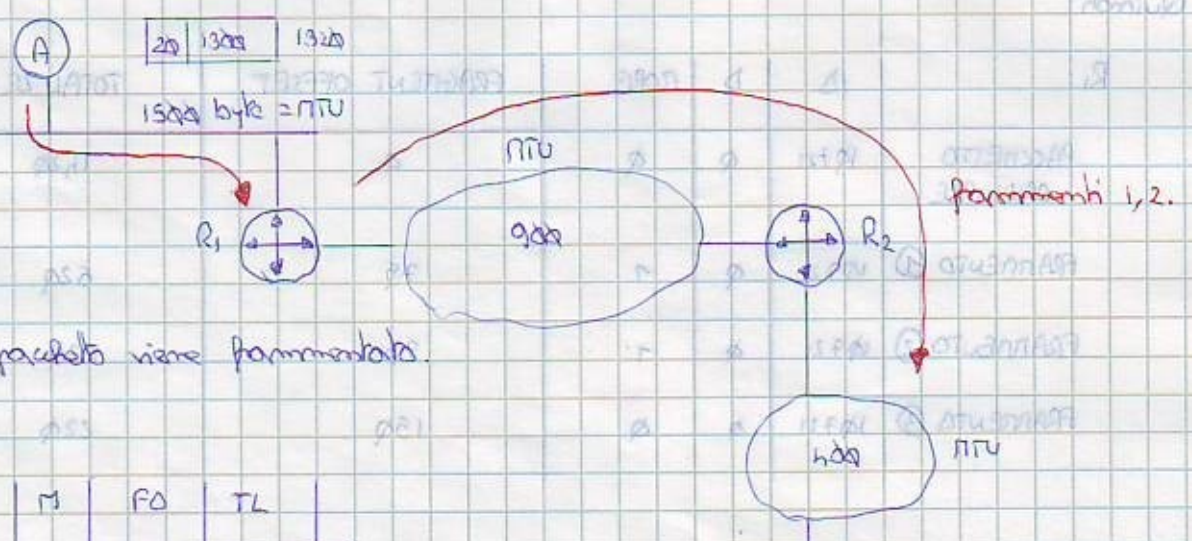 A
20 1300 1320
1500 byte = MTU
MTU
frammenti 1, 2.
R1
900
R2
pacchetto viene frammentato.
400
MTU
M FO TL